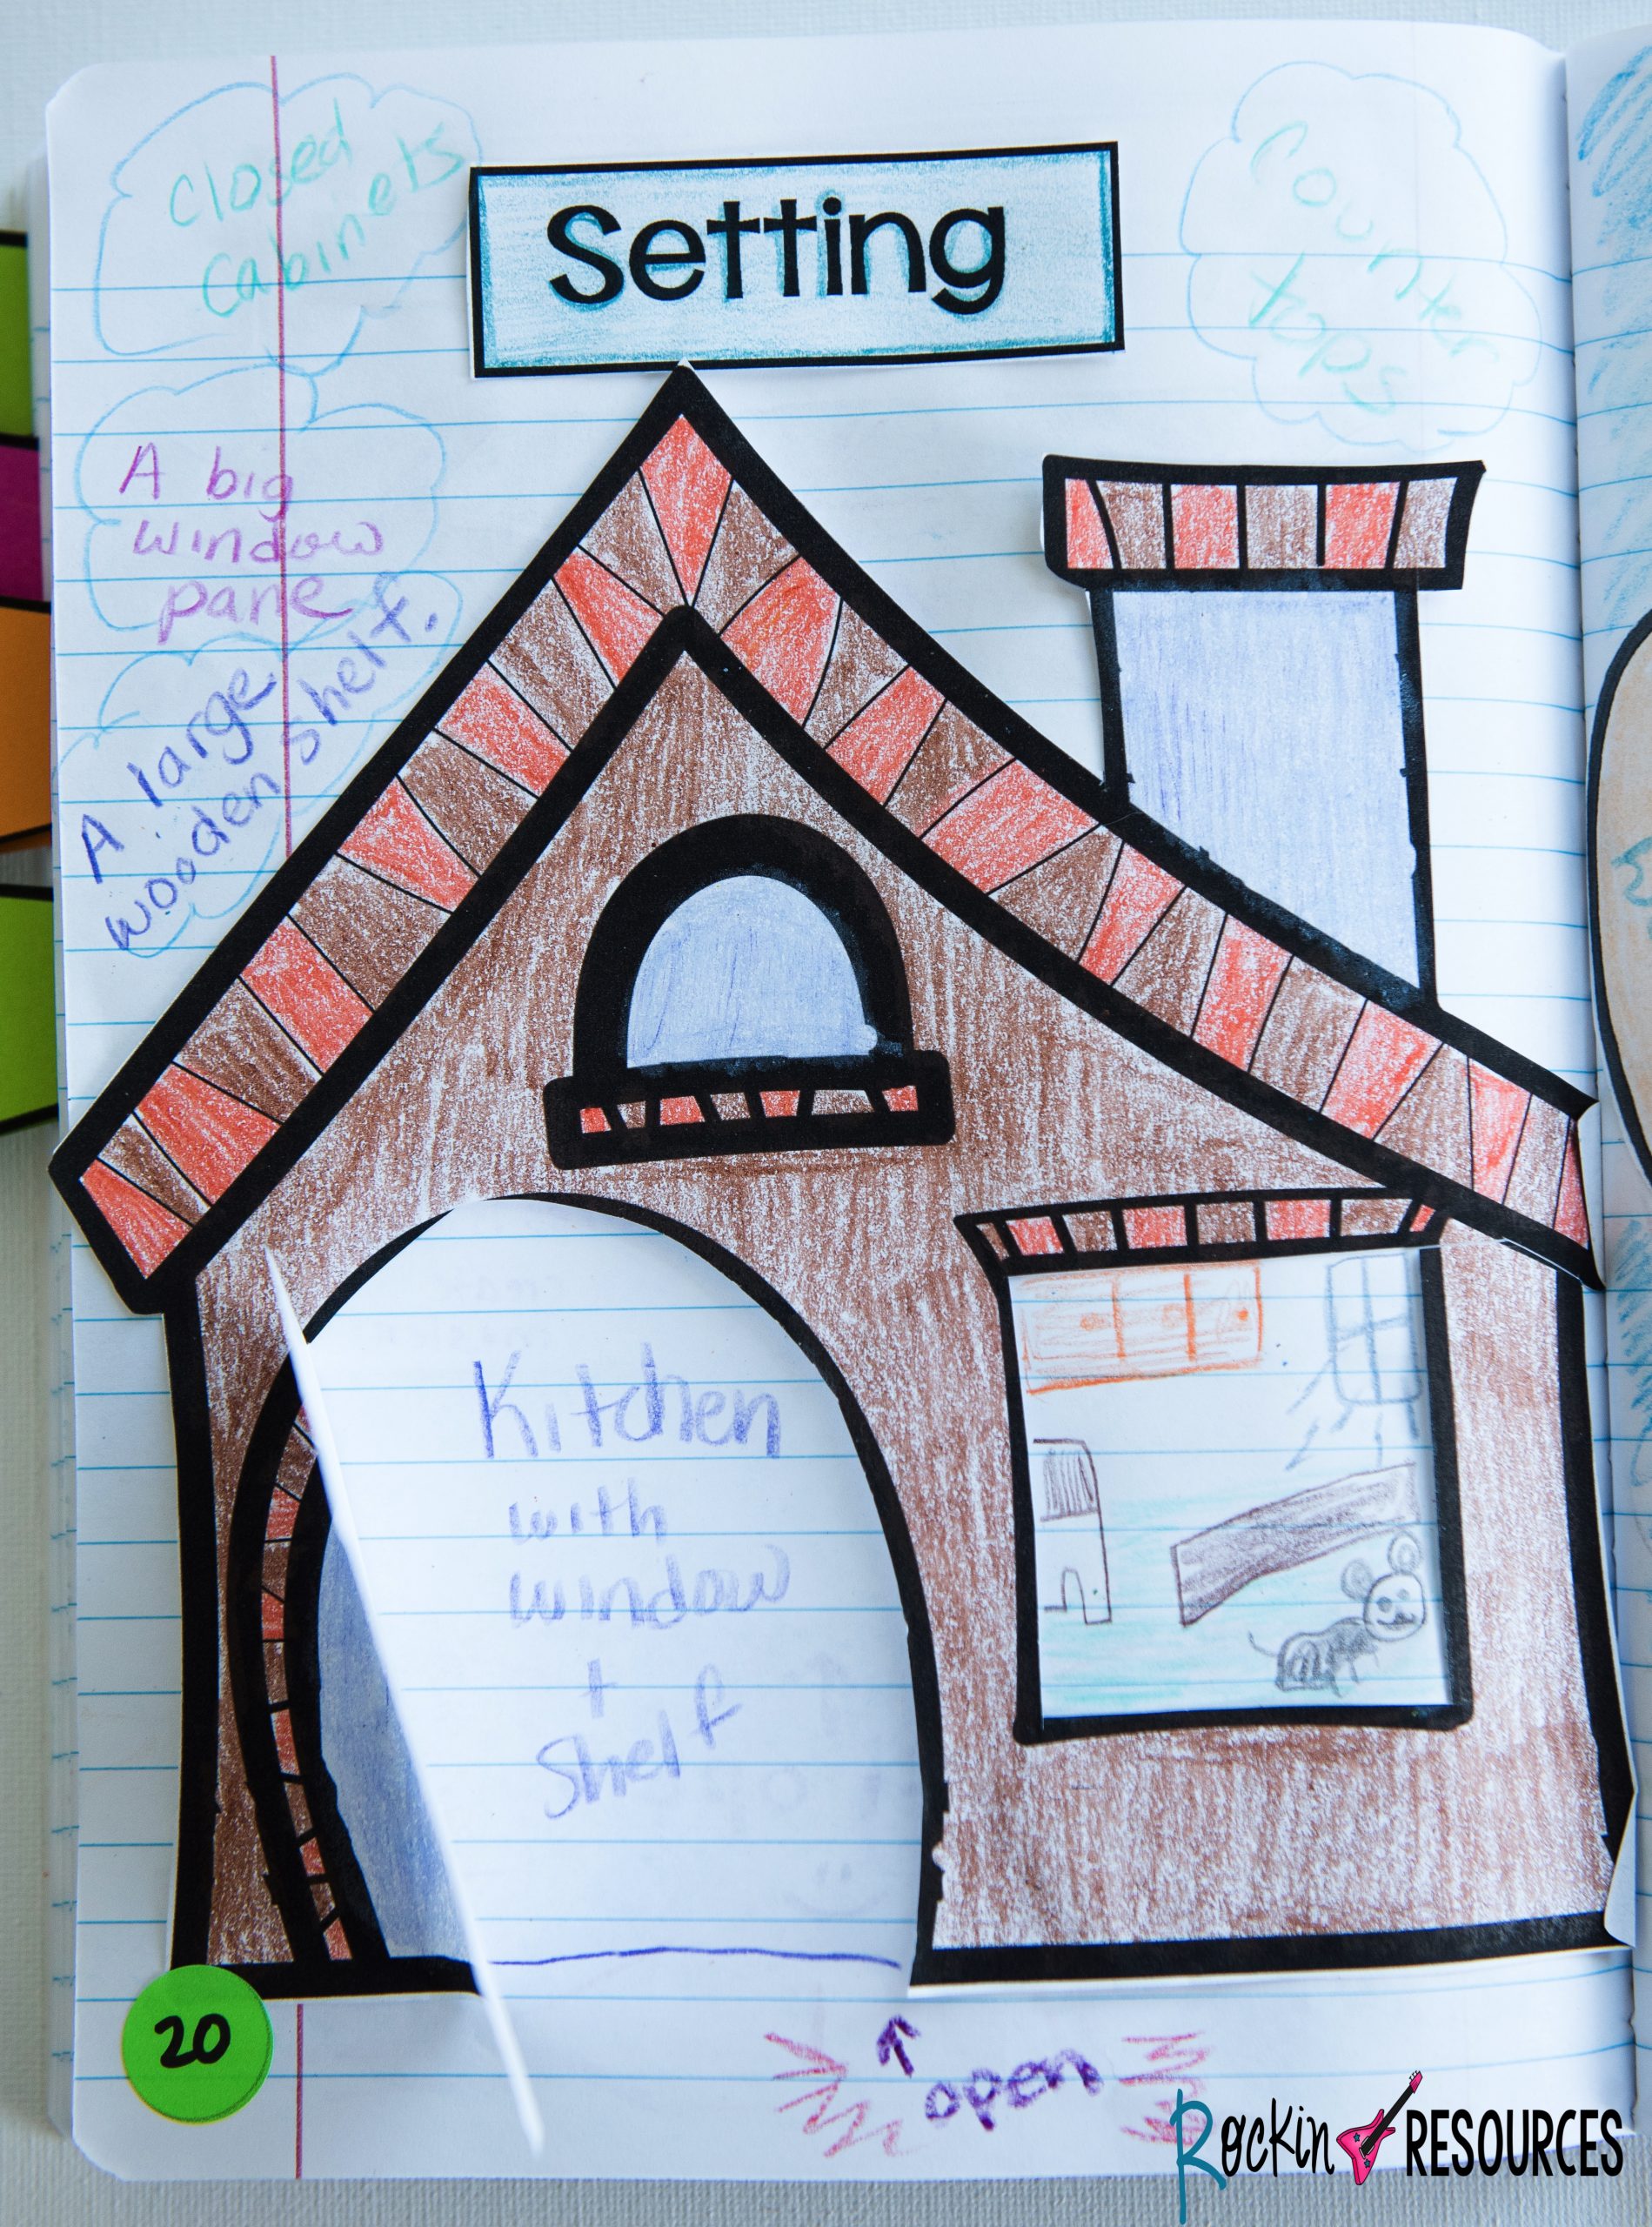 Closed
Cabinets
Setting
Counter
tops
A big
window
pane
A large
wooden shelf.
Kitchen
with
window
+
Shelf
20
open
Rockin RESOURCES